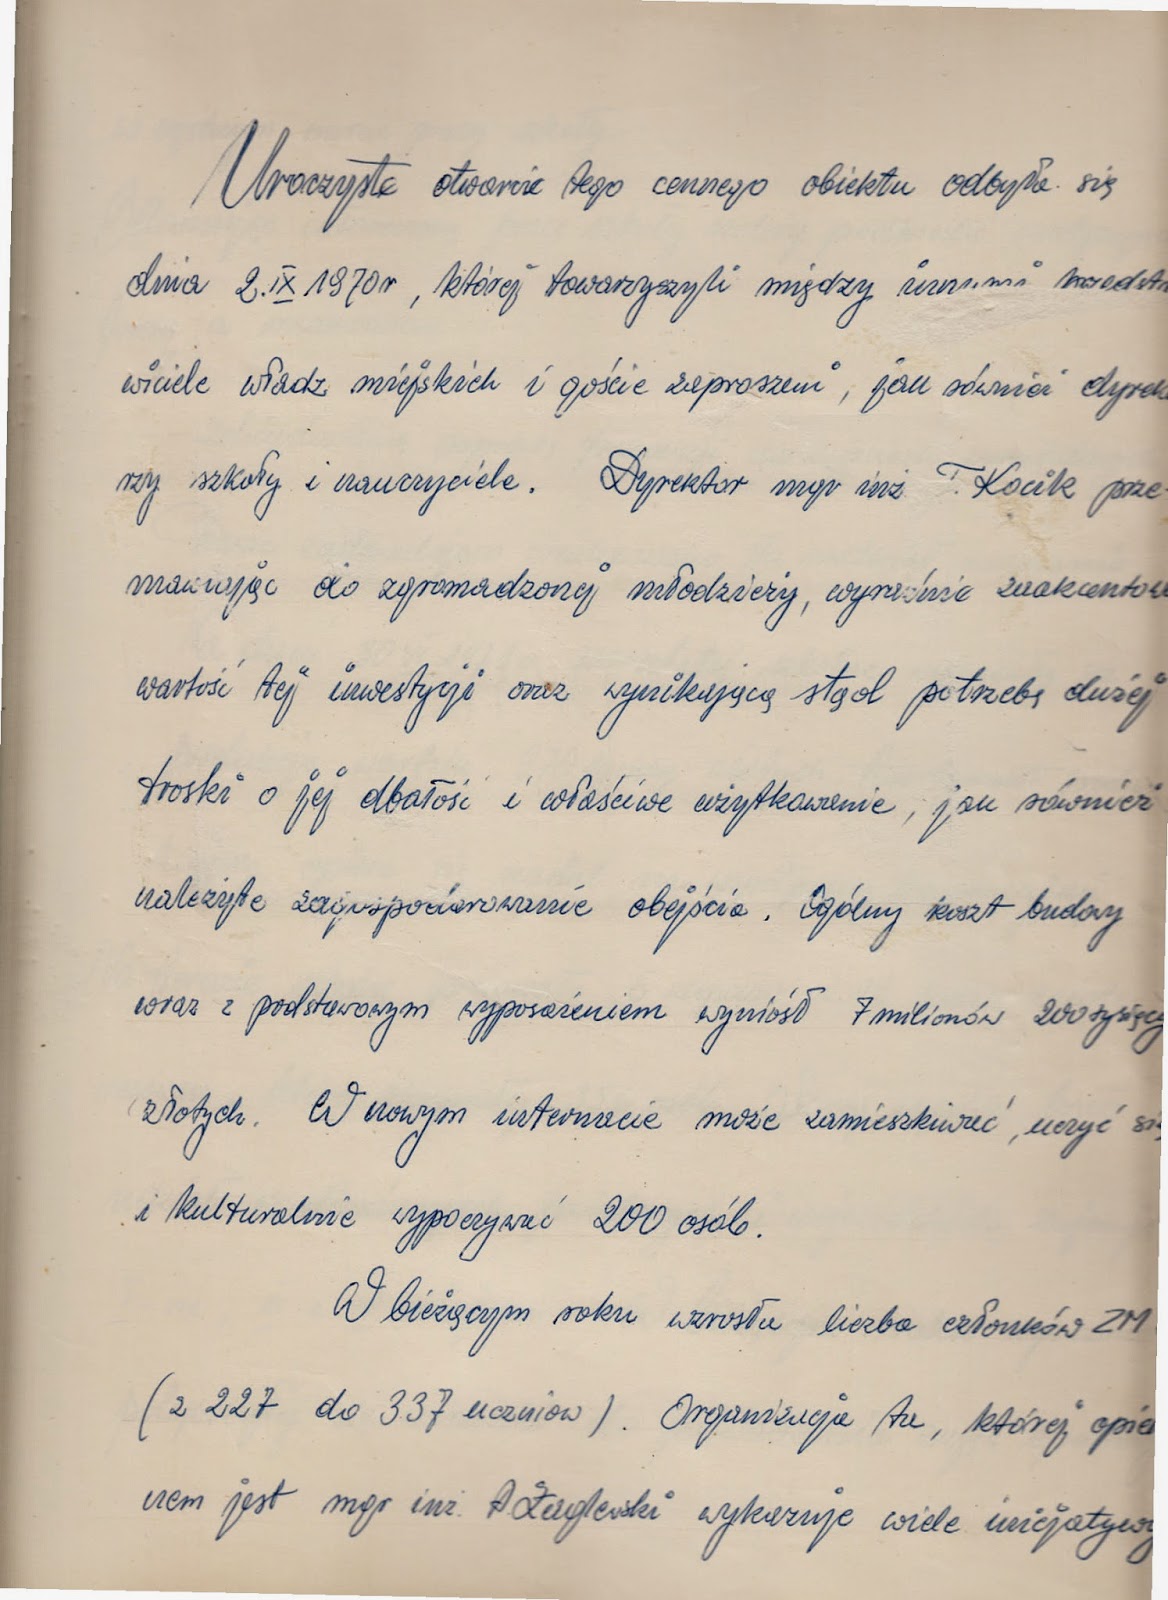 Uroczyste otwarcie tego cennego obiektu odbyło się
dnia 2.IX 1970r, której towarzyszyli między innymi przedsta
wiciele władz miejskich i goście zaproszeni, jak również dyrek
rzy szkoły i nauczyciele. Dyrektor mgr inż T. Kocik prze-
mawiając do zgromadzonej młodzieży, wyraźnie zaakcentow
wartość tej inwestycji oraz wynikającą stąd potrzebę dużej
troski o jej dbałość i właściwe użytkowanie, jak również
należyte zagospodarowanie obejścia. Ogólny koszt budowy
wraz z podstawowym wyposażeniem wyniósł 7 milionów 200 tysięcy
złotych. W nowym internacie może zamieszkiwać, uczyć się
i kulturalnie wypoczywać 200 osób.
W bieżącym roku wzrosła liczba członków ZM
(z 227 do 337 uczniów). Organizacja ta, której opie
nem jest mgr inż. A. Żaglewski wykazuje wiele inicjatywy